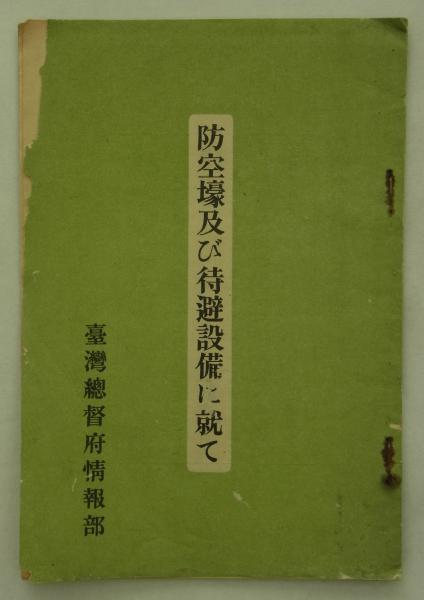 防空壕及び待避設備に就て
臺灣總督府情報部